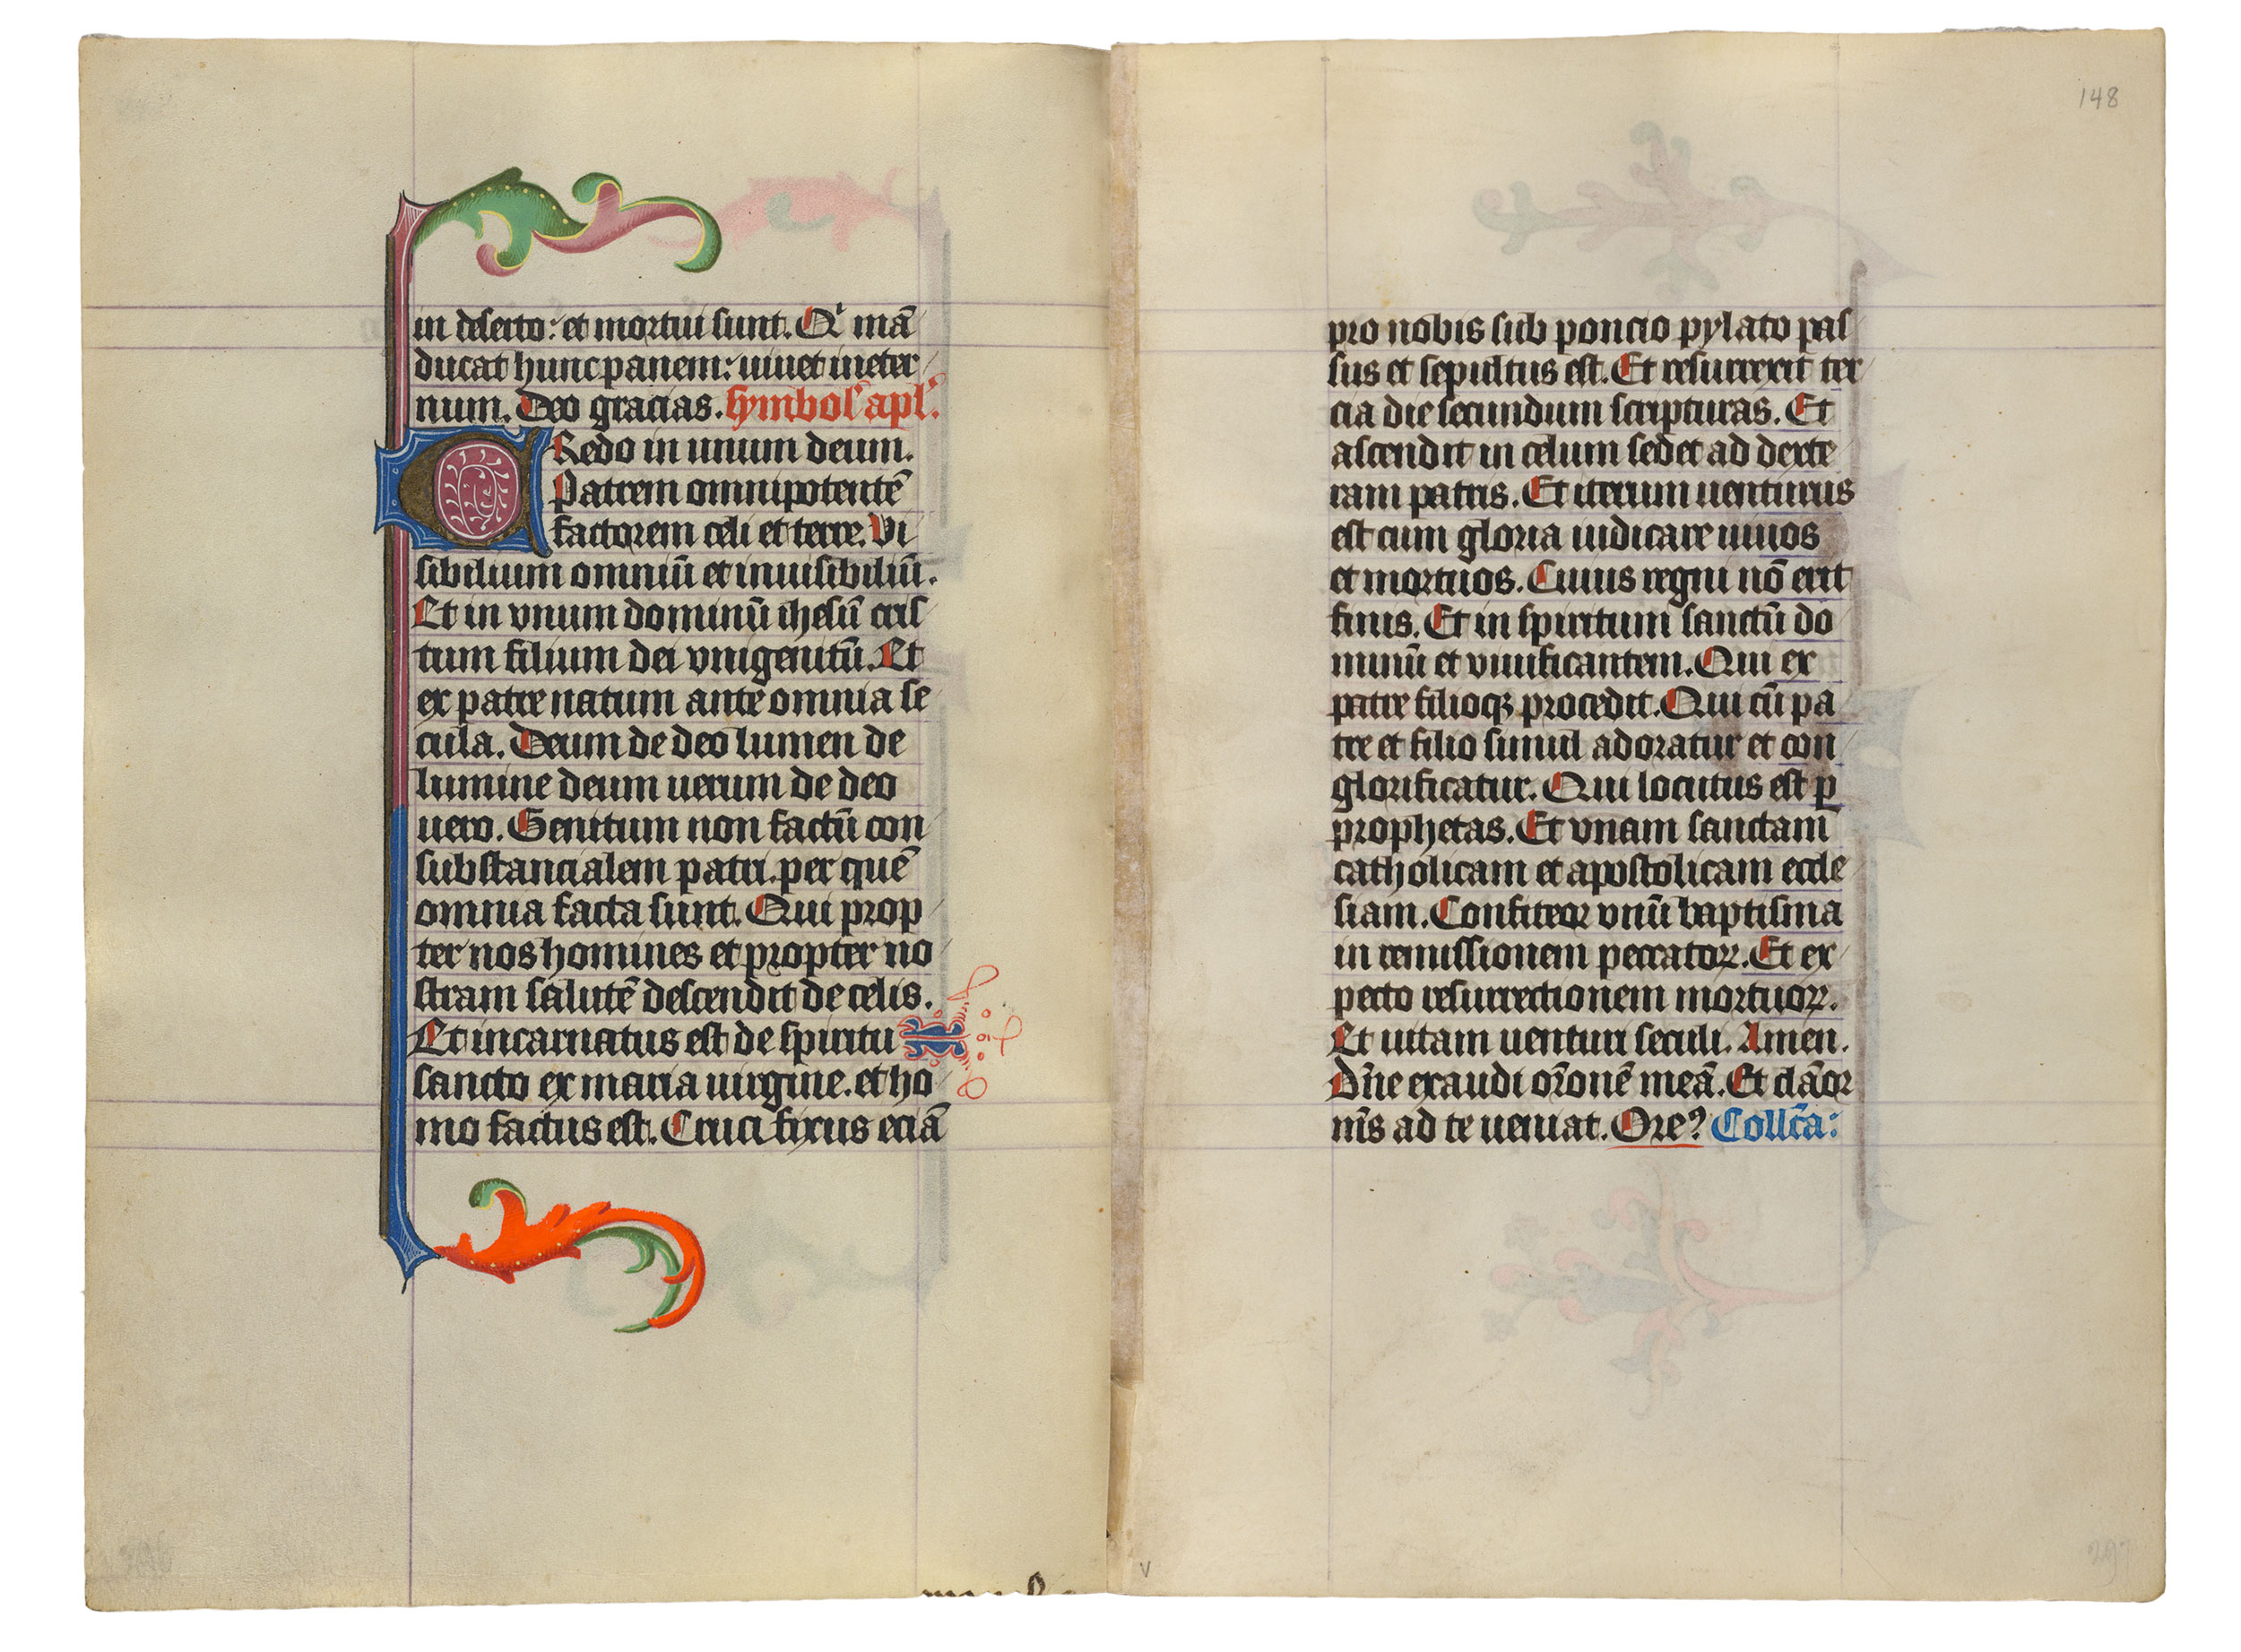 in deserto: et mortui sunt. Qͥ mā
ducat hunc panem: uiuet in eter
num. Deo gracias. Symbol' apl'.
Credo in unum deum.
Patrem omnipotentē
factorem celi et terre. Vi
sibilium omniū et inuisibiliū.
Et in vnum dominū ihesū cris
tum filium dei vnigenitū. Et
ex patre natum ante omnia se
cula. Deum de deo lumen de
lumine deum uerum de deo
uero. Genitum non factū con
substancialem patri. per quē
omnia facta sunt. Qui prop
ter nos homines et propter no
stram salutē descendit de celis.
Et incarnatus est de spiritu
sancto ex maria uirgine. et ho
mo factus est. Cruci fixus eciā
148
pro nobis sub poncio pylato pas
sus et sepultus est. Et resurrexit ter
cia die secundum scripturas. Et
ascendit in celum sedet ad dexte
ram patris. Et iterum uenturus
est cum gloria iudicare uiuos
et mortuos. Cuius regni nō erit
finis. Et in spiritum sanctū do
minū et viuificantem. Qui ex
patre filioqꝫ procedit. Qui cū pa
tre et filio simul adoratur et con
glorificatur. Qui locutus est ꝑ
prophetas. Et vnam sanctam
catholicam et apostolicam eccle
siam. Confiteor vnū baptisma
in remissionem peccatoꝝ. Et ex
pecto resurrectionem mortuoꝝ.
Et uitam uenturi seculi. Amen.
Dn̄e exaudi or̄onē meā. Et clāor
m̄s ad te ueniat. Orem9 Coll'c̄a:
v